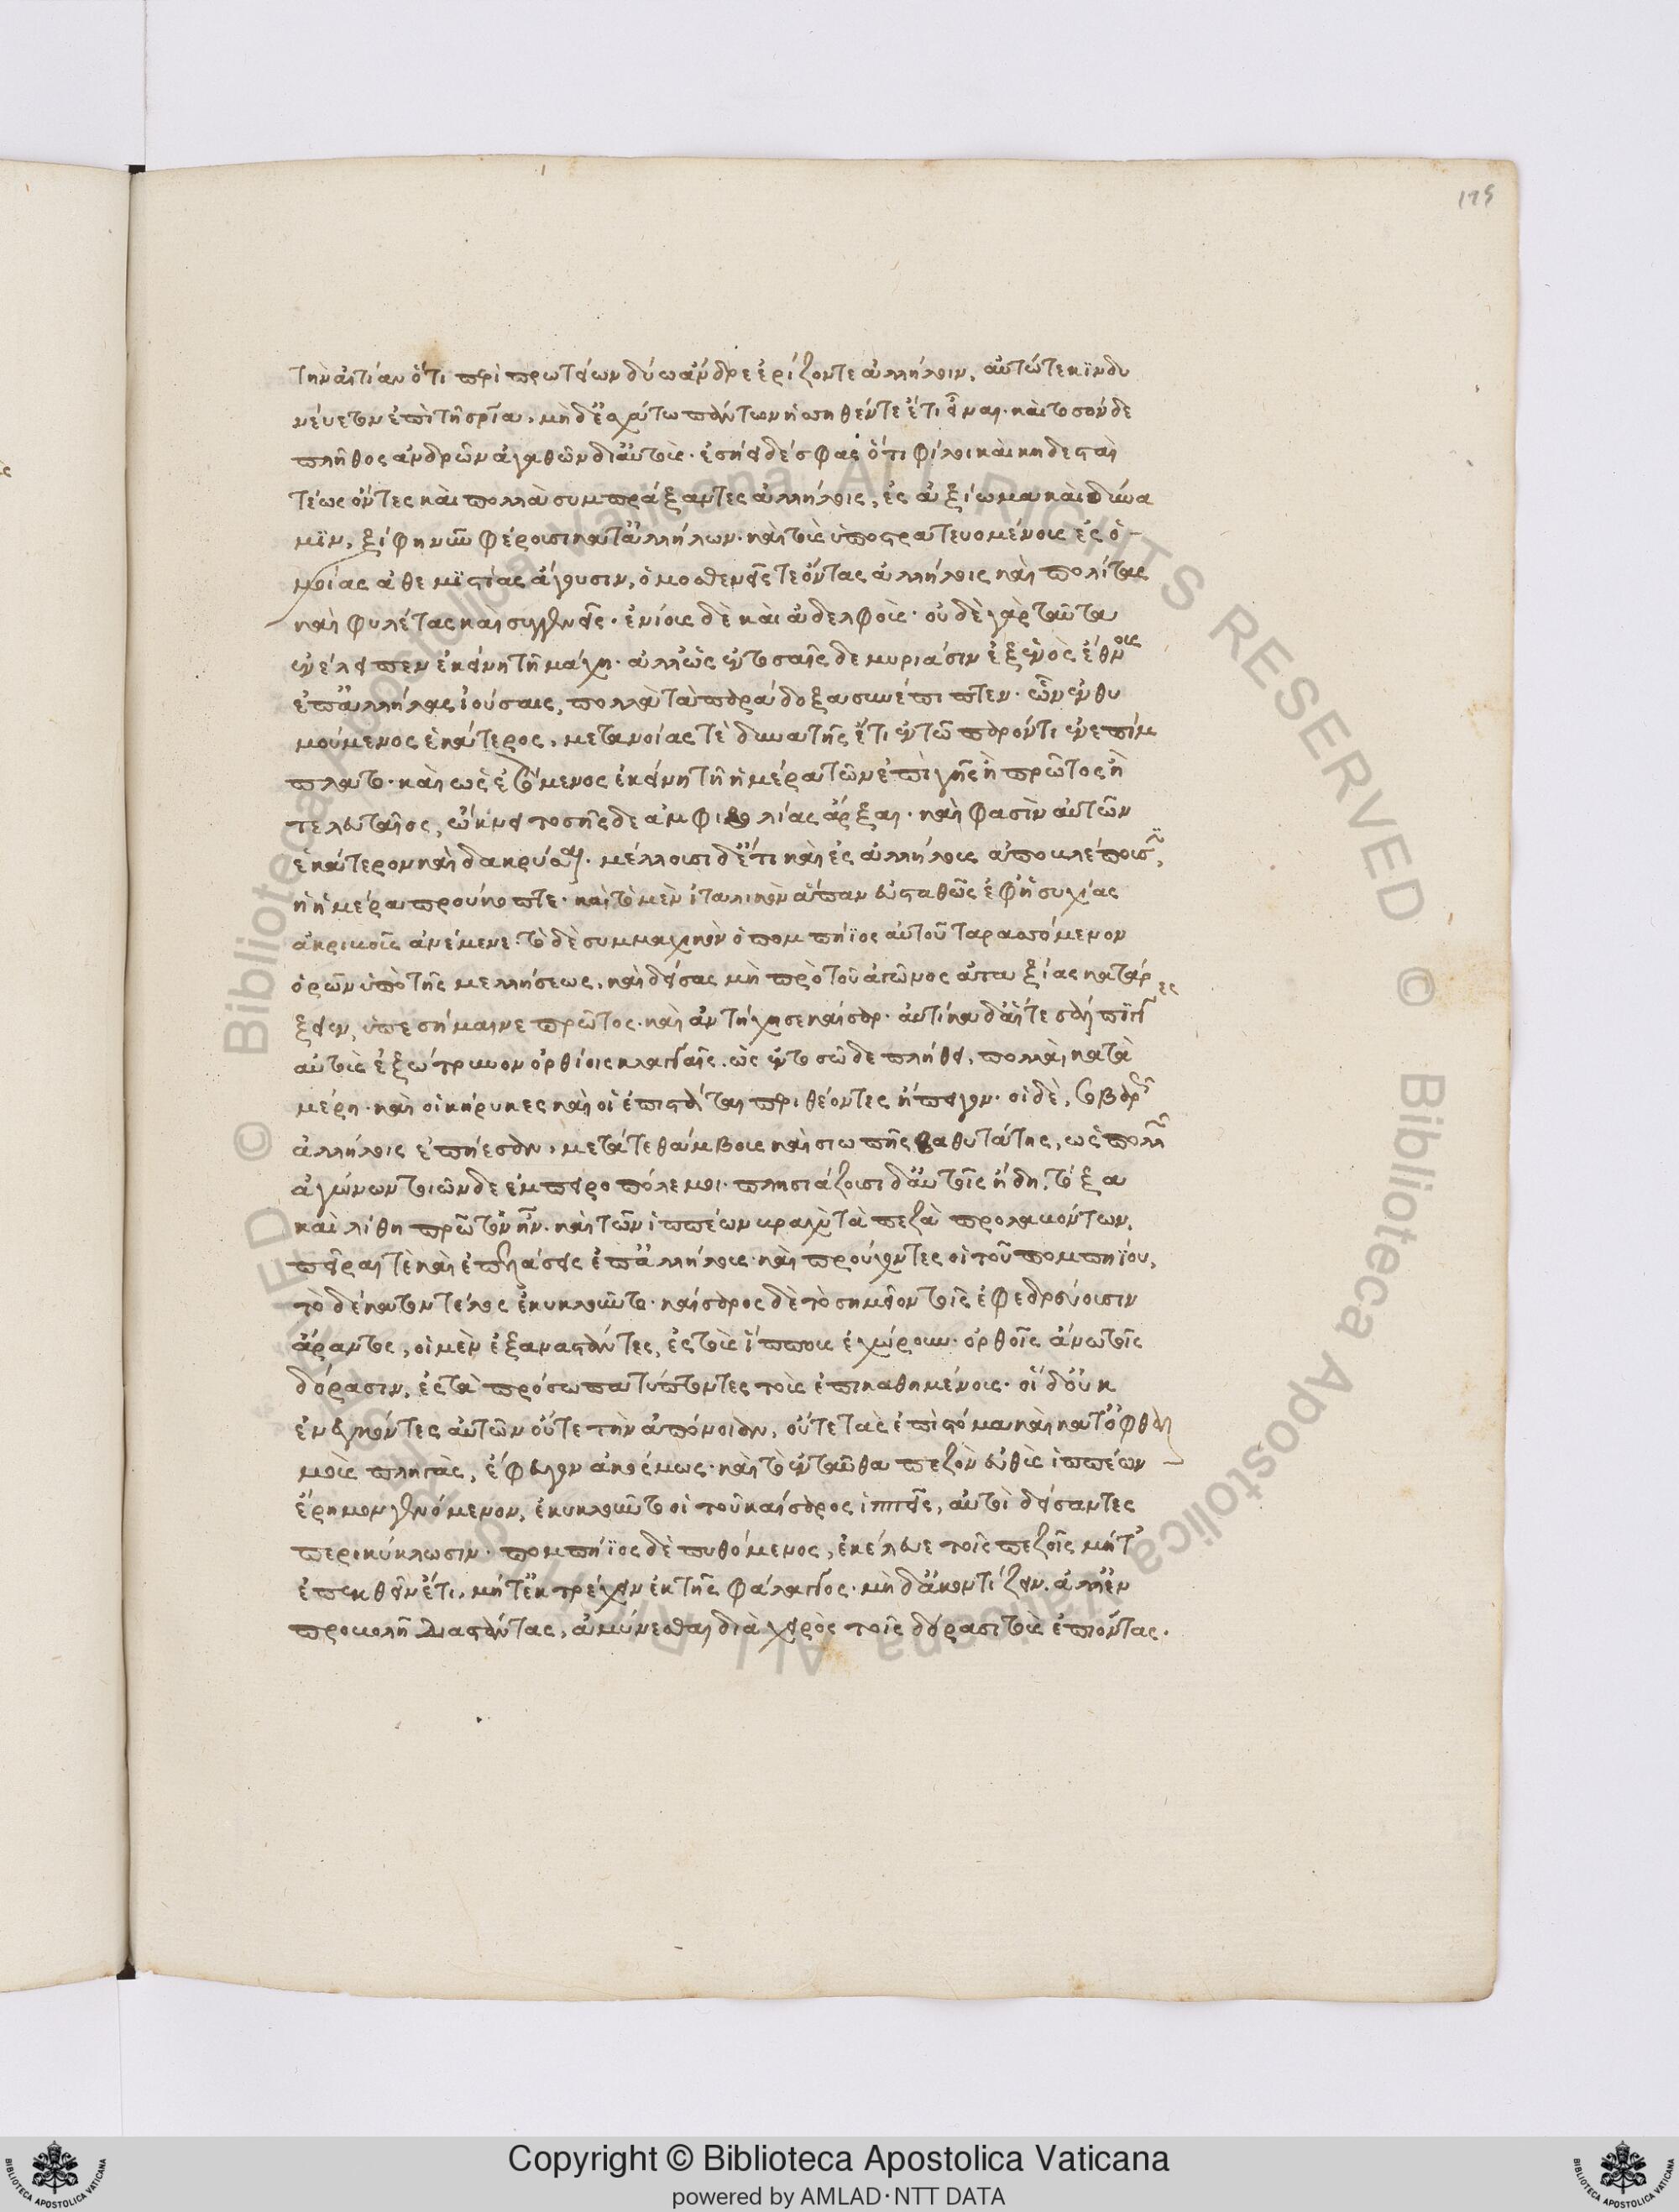 175
τὴν αἰτίαν ὅτι περὶ πρωτείων δύο ἄνδρε ἐρίζοντε ἀλλήλοιν, αὐτώ τε κινδυ
νεύετον ἐπὶ τῇ σωτηρίᾳ, μὴ δ' ἐσχάτω πάντων ἡσσηθέντε ἔτι εἶναι. καὶ τοσόνδε
πλῆθος ἀνδρῶν ἀγαθῶν δι' αὐτούς. ἐσήει δέ σφας ὅτι φίλοι καὶ κηδεσταὶ
τέως ὄντες καὶ πολλὰ συμπράξαντες ἀλλήλοις, ἐς ἀξίωμα καὶ δύνα
μιν, ξίφη νῦν φέρουσι κατ' ἀλλήλων. καὶ τοὺς ὑποστρατευομένους ἐς ὁ-
μοίας ἀθεμιστίας ἄγουσιν, ὁμοεθνεῖς τε ὄντας ἀλλήλοις καὶ πολίτας
καὶ φυλέτας καὶ συγγενεῖς. ἐνίους δὲ καὶ ἀδελφούς. οὐδὲ γὰρ ταῦτα
ἐνέλειπεν ἐκείνῃ τῇ μάχῃ. ἀλλ' ὡς ἐν τοσαῖσδε μυριάσιν ἐξ ἑνὸς ἔθνους
ἐπ' ἀλλήλας ἰούσαις, πολλὰ τὰ παράδοξα συνέπιπτεν. ὧν ἐνθυ
μούμενος ἑκάτερος, μετανοίας τε δυνατῆς ἔτι ἐν τῷ παρόντι ἐνεπίμ
πλατο. καὶ ὡς ἐσόμενος ἐκείνῃ τῇ ἡμέρᾳ τῶν ἐπὶ γῆς ἢ πρῶτος ἢ
τελευταῖος, ὤκνει τοσῆσδε ἀμφιβολίας ἄρξαι. καὶ φασὶν αὐτῶν
ἑκάτερον καὶ δακρῦσαι. μέλλουσι δ' ἔτι καὶ ἐς ἀλλήλους ἀποβλέπουσιν,
ἡ ἡμέρα προύκοπτε. καὶ τὸ μὲν ἰταλικὸν ἅπαν εὐσταθῶς ἐφ' ἡσυχίας
ἀκριβοῦς ἀνέμενε. τὸ δὲ συμμαχικὸν ὁ πομπήϊος αὑτοῦ ταρασσόμενον
ὁρῶν ὑπὸ τῆς μελλήσεως, καὶ δείσας μὴ πρὸ τοῦ ἀγῶνος ἀταξίας κατάρ
ξειεν, ὑπεσήμαινε πρῶτος. καὶ ἀντήχησε καῖσαρ. αὐτίκα δ' αἵ τε σάλπιγγες
αὐτοὺς ἐξώτρυνον ὀρθίοις κλαγγαῖς, ὡς ἐν τοσῷδε πλήθει, πολλαὶ κατὰ
μέρη. καὶ οἱ κήρυκες καὶ οἱ ἐπιστάται περιθέοντες ἤπειγον. οἱ δὲ, σοβαρῶς
ἀλλήλοις ἐπῄεσαν, μετά τε θάμβους καὶ σιωπῆς βαθυτάτης, ὡς πολλῶν
ἀγώνων τοιῶνδε ἐμπειροπόλεμοι. πλησιάζουσι δ' αὐτοῖς ἤδη, τόξα
καὶ λίθοι πρῶτον ἦν. καὶ τῶν ἱππέων βραχὺ τὰ πεζὰ προλαβόντων,
πεῖραί τε καὶ ἐπελάσεις ἐπ' ἀλλήλους. καὶ προύχοντες οἱ τοῦ πομπηΐου,
τὸ δέκατον τέλος ἐκυκλοῦντο. καίσαρος δὲ τὸ σημεῖον τοῖς ἐφεδρεύουσιν
ἄραντος, οἱ μὲν ἐξαναστάντες, ἐς τοὺς ἵππους ἐχώρουν. ὀρθοῖς ἄνω τοῖς
δόρασιν, ἐς τὰ πρόσωπα τύπτοντες τοὺς ἐπικαθημένους. οἱ δ' οὐκ
ἐνεγκόντες αὐτῶν οὔτε τὴν ἀπόνοιαν, οὔτε τὰς ἐπὶ στόμα καὶ κατ' ὀφθαλ
μοὺς πληγὰς, ἔφευγον ἀκόσμως. καὶ τὸ ἐνταῦθα πεζὸν εὐθὺς ἱππέων
ἔρημον γενόμενον, ἐκυκλοῦντο οἱ τοῦ καίσαρος ἱππεῖς, αὐτοὶ δείσαντες
περικύκλωσιν. πομπήϊος δὲ πυθόμενος, ἐκέλευε τοῖς πεζοῖς μήτ'
ἐπεκθεῖν ἔτι, μήτ' ἐκτρέχειν ἐκ τῆς φάλαγγος. μηδ' ἀκοντίζειν. ἀλλ' ἐν
προβολῇ διαστάντας, ἀμύνεσθαι διὰ χειρὸς τοῖς δόρασι τοὺς ἐπιόντας.
Copyright © Biblioteca Apostolica Vaticana
powered by AMLAD·NTT DATA